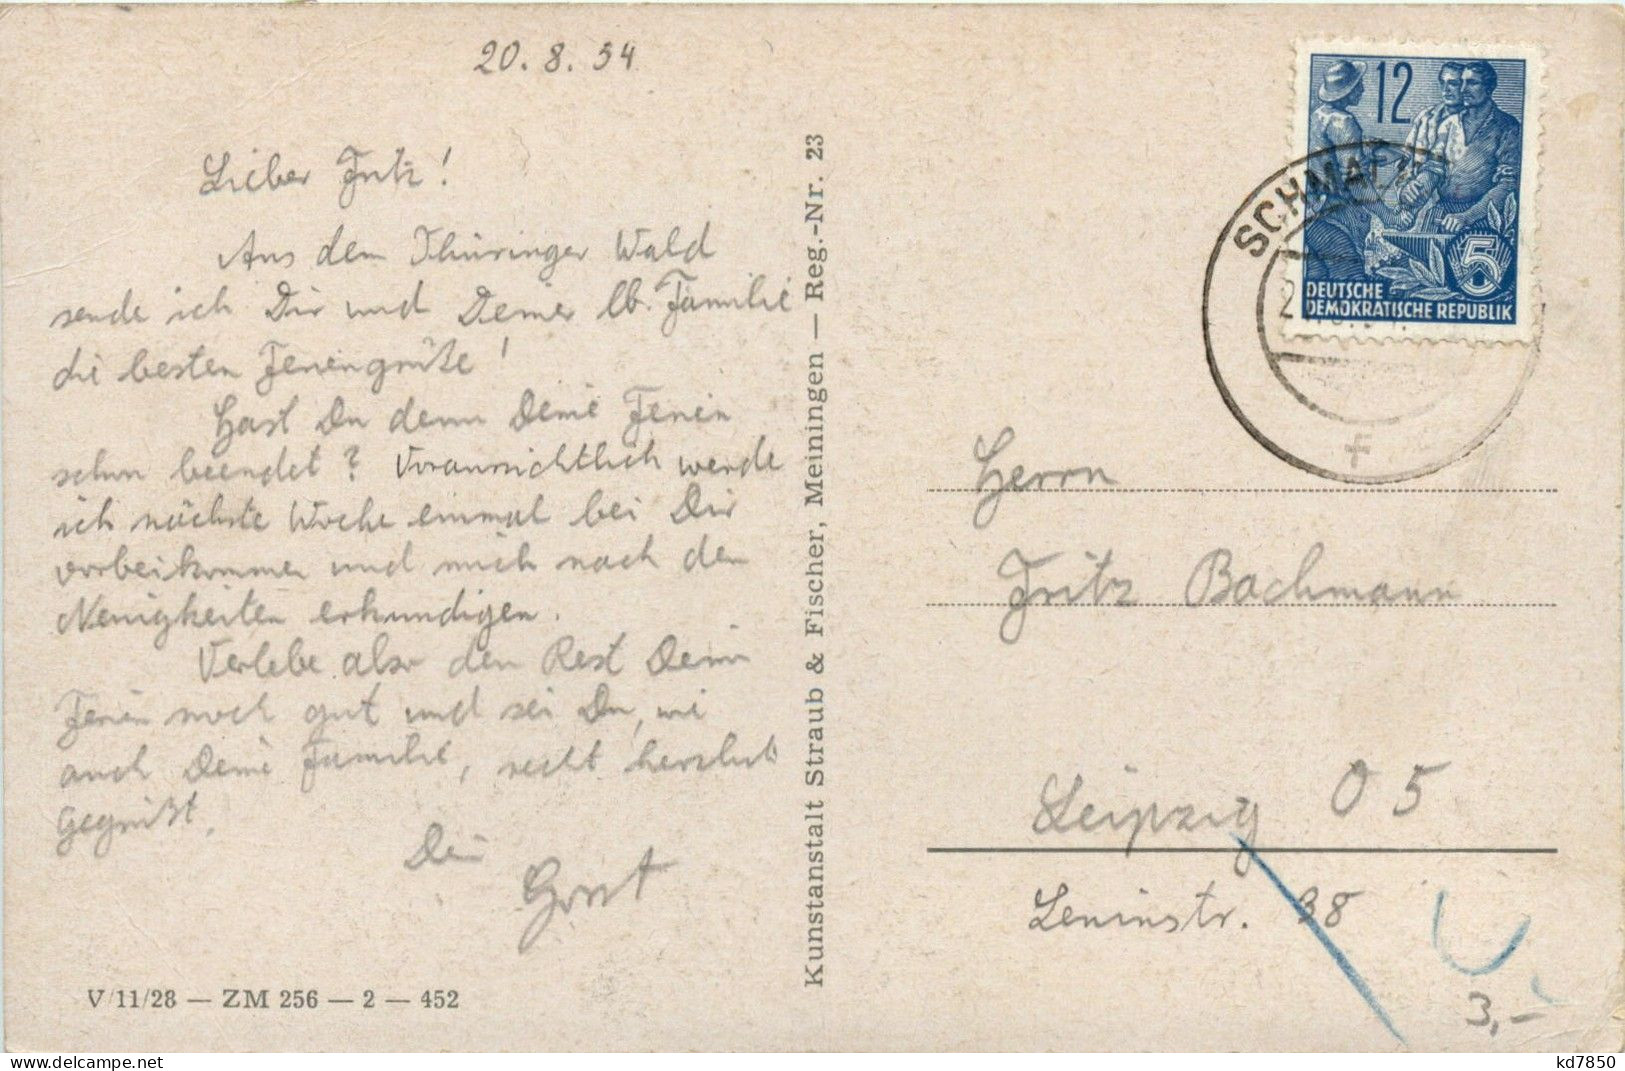 20. 8. 54
Lieber Fritz!
Aus dem Thüringer Wald
sende ich Dir und Deiner lb. Familie
die besten Feriengrüße!
Hast Du denn Deine Ferien
schon beendet? Voraussichtlich werde
ich nächste Woche einmal bei Dir
vorbeikommen und mich nach den
Neuigkeiten erkundigen.
Verlebe also den Rest Deiner
Ferien noch gut und sei Du, wie
auch Deine Familie, recht herzlich
gegrüßt.
Dein
V/11/28 — ZM 256 — 2 — 452
Kunstanstalt Straub & Fischer, Meiningen — Reg.-Nr. 23
12
5
DEUTSCHE
DEMOKRATISCHE REPUBLIK
Herrn
Fritz Bachmann
Leipzig O 5
Leninstr. 38
3,-
www.delcampe.net
kd7850